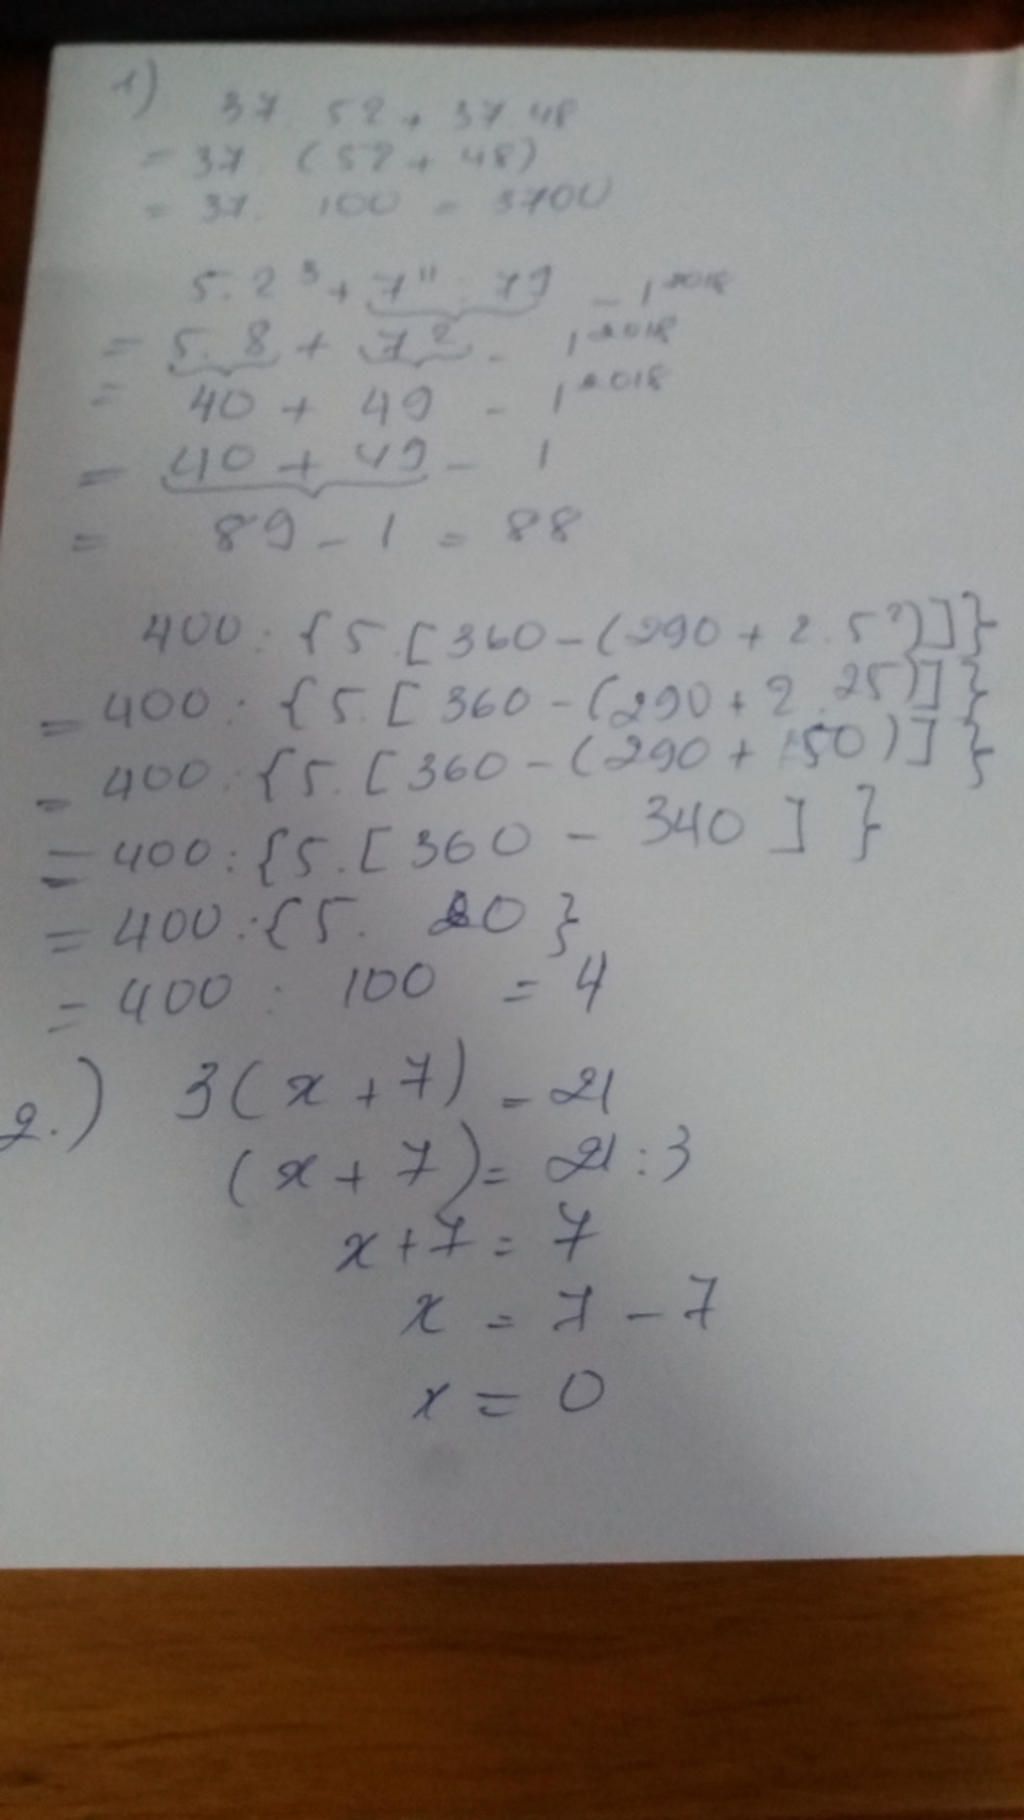 1) 37 . 52 + 37 . 48
= 37 . (52 + 48)
= 37 . 100 = 3700
5 . 2³ + 7¹¹ : 7⁹ - 1²⁰¹⁸
= 5 . 8 + 7² - 1²⁰¹⁸
= 40 + 49 - 1²⁰¹⁸
= 40 + 49 - 1
= 89 - 1 = 88
400 : {5 . [360 - (290 + 2 . 5²)]}
= 400 : {5 . [360 - (290 + 2 . 25)]}
= 400 : {5 . [360 - (290 + 50)]}
= 400 : {5 . [360 - 340]}
= 400 : {5 . 20}
= 400 : 100 = 4
2.) 3(x + 7) = 21
(x + 7) = 21 : 3
x + 7 = 7
x = 7 - 7
x = 0